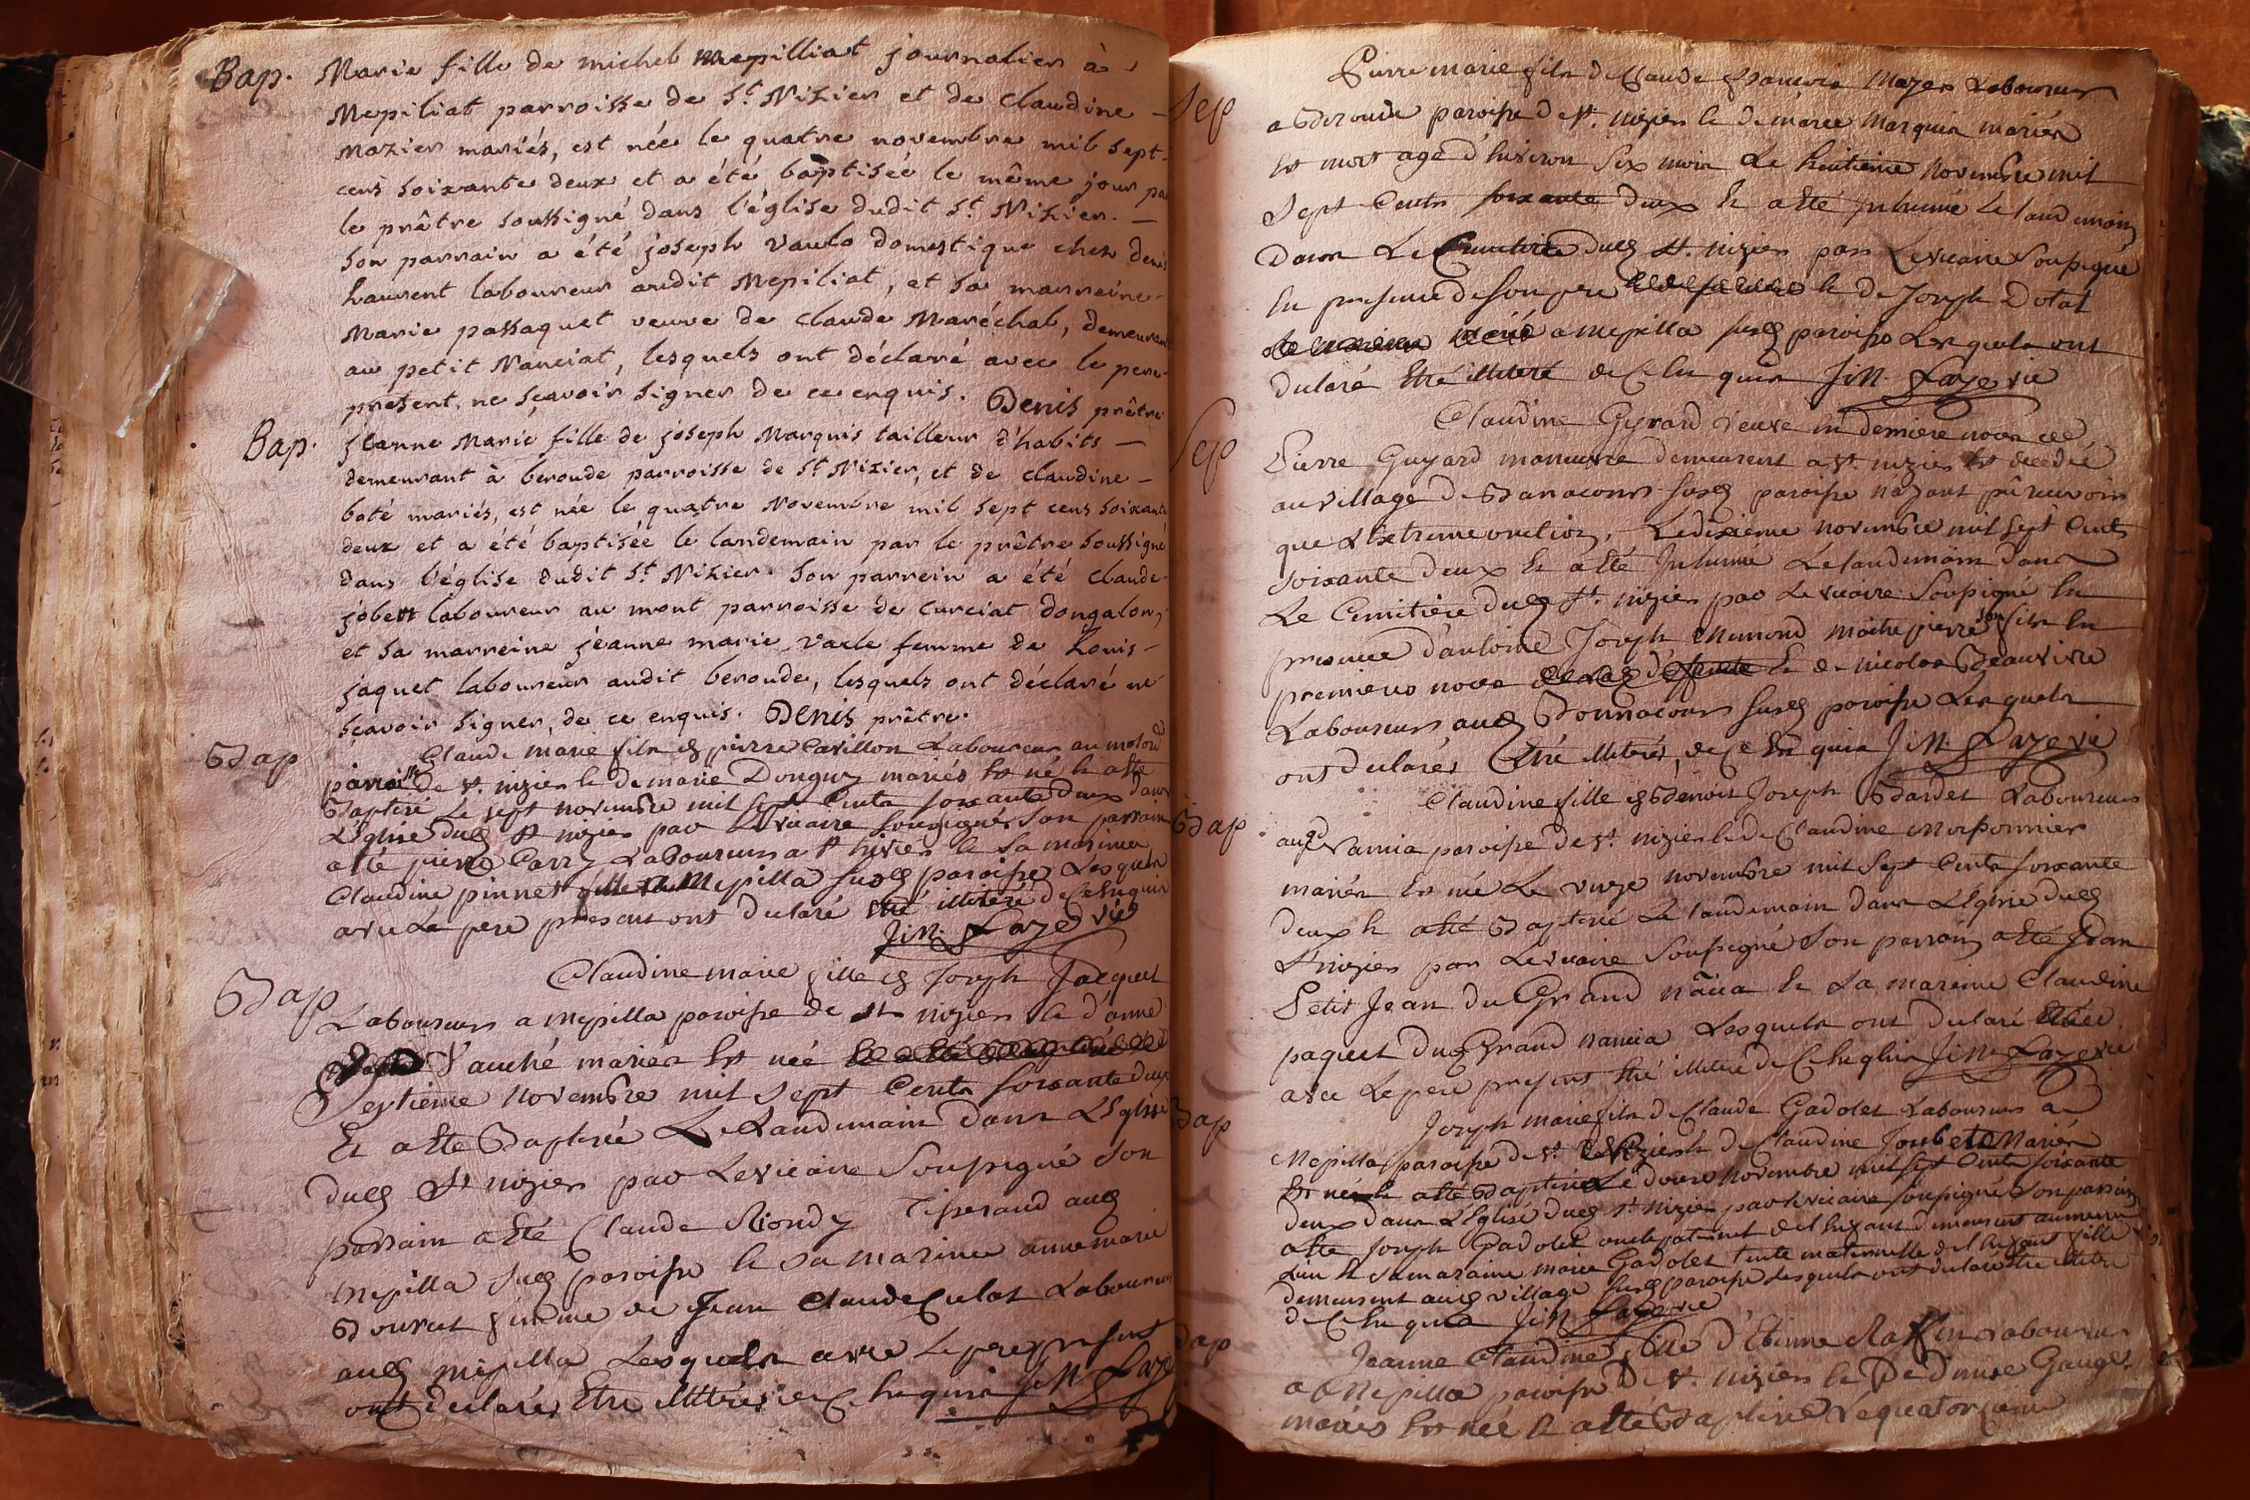 Bap. Marie fille de michel mepilliat journalier à
Mepiliat parroisse de St. Nizier et de claudine
Mazier mariés, est née le quatre novembre mil sept
cens soixante deux et a été baptisée le même jour par
le prêtre soussigné dans l'église dudit St. Nizier.
Son parrain a été joseph vaulo domestique chez denis
haurent laboureur audit Mepiliat, et sa marreine
Marie passaquet veuve de claude Maréchal, demeurant
au petit Nanciat, lesquels ont déclaré avec le pere
présent, ne sçavoir signer de ce enquis. Denis prêtre
Bap. jeanne Marie fille de joseph Marquis tailleur d'habits
demeurant à beroude parroisse de St Nizier, et de claudine
baté mariés, est née le quatre Novembre mil sept cens soixante
deux et a été baptisée le landemain par le prêtre soussigné
dans l'église dudit St Nizier. Son parrein a été claude
jobert laboureur au mont parroisse de curciat dongalon,
et sa marreine jéanne marie varle femme de Louis
jaquet laboureur audit beroude, lesquels ont déclaré ne
sçavoir signer, de ce enquis. Denis prêtre.
Bap Claude marie fils de pierre Cavillon Laboureur au
paroisse de st. nizier et de marie Donguy mariés est né et a été
Baptisé Le sept novembre mil sept Cents soixante deux dans
L'Eglise dud st nizier par Le vicaire soussigné son parrain
a été pierre Carry Laboureur a st nizier et sa marinne
Claudine pinnet fille a Mepilla susd paroisse Lesquels
avec Le pere present ont declaré etre illiteré de ce enquis
J: M: Faye vic
Bap Claudine marie fille de Joseph Jacquet
Laboureur a mepilla paroisse de st nizier et d'anne
Vauché mariés est née
Septième Novembre mil sept Cents soixante deux
Et a été Baptisée Le Landemain dans L'Eglise
dud St nizier par Le vicaire soussigné son
parrain a été Claude Riondy Tisserand aud
mepilla susd paroisse et sa marinne anne marie
Bouvret femme de Jean Claude Culat Laboureur
aud mepilla Lesquels avec Le pere present
ont declarés Etre illitérés de ce enquis J: M: Faye
Sep Pierre marie fils de Claude françois Mazer Laboureur
a Beroude paroisse de st. nizier et de marie Marquis mariés
est mort agé d'environ six mois Le huitieme Novembre mil
Sept Cents soixante deux et a été Inhumé Le landemain
Dans Le Cimetière dud st. nizier par Le vicaire soussigné
En presence de son pere et de Joseph Dotal
a mepilla susd paroisse Lesquels ont
declaré Etre illiteré de ce enquis J: M: Faye vic
Sep Claudine Guyard veuve en derniere noces de
Pierre Guyard manuvre demeurent a st. nizier est decedée
au village de Banacours susd paroisse n'ayant pû recevoir
que L'Extreme onction, Le dixième novembre mil sept Cents
soixante deux et a été Inhumé Le landemain dans
Le Cimitière dud St. nizier par Le vicaire soussigné En
presence d'antoine Joseph Munond Moitre pierre son fils En
premieres noces et de nicolas Beauvivre
Laboureurs aud Bonnacours susd paroisse Lesquels
ont declarés Etre illiterés, de ce En quis J: M: Faye vic
Bap Claudine fille de Benoit Joseph Bardet Laboureur
aud Nancia paroisse de st. nizier et de Claudine Morponnier
mariés Est née Le onze novembre mil sept Cents soixante
deux et a été Baptisée Le landemain dans L'Eglise dud
St nizier par Le vicaire soussigné son parrain a été Jean
Petit Jean du Grand nancia et sa mareine Claudine
paquet du Grand nancia Lesquels ont declaré
avec Le pere present Etré illiteré de ce Enquis J: M: Faye vic
Bap Joseph marie fils de Claude Gadolet Laboureur a
Mepilla paroisse de st. Nizier et de Claudine Joubet Mariés
Est né et a été Baptisé Le douze Novembre mil sept Cents soixante
deux dans L'Eglise dud st nizier par Le vicaire soussigné son parrain
a été Joseph Gadolet oncle paternel de L'Enfant demeurent au meme
Lieu et sa maraine marie Gadolet tente maternelle de L'Enfant fille
demeurent aud village susd paroisse Lesquels ont declaré Etre illiteré
de ce Enquis J: M: Faye vic
Bap Jeanne Claudine fille d'Etienne Raffin Laboureur
a Mepilla paroisse De st. nizier et De Denise Gauget
mariés Est née Et a été Baptisée Le quatorzieme